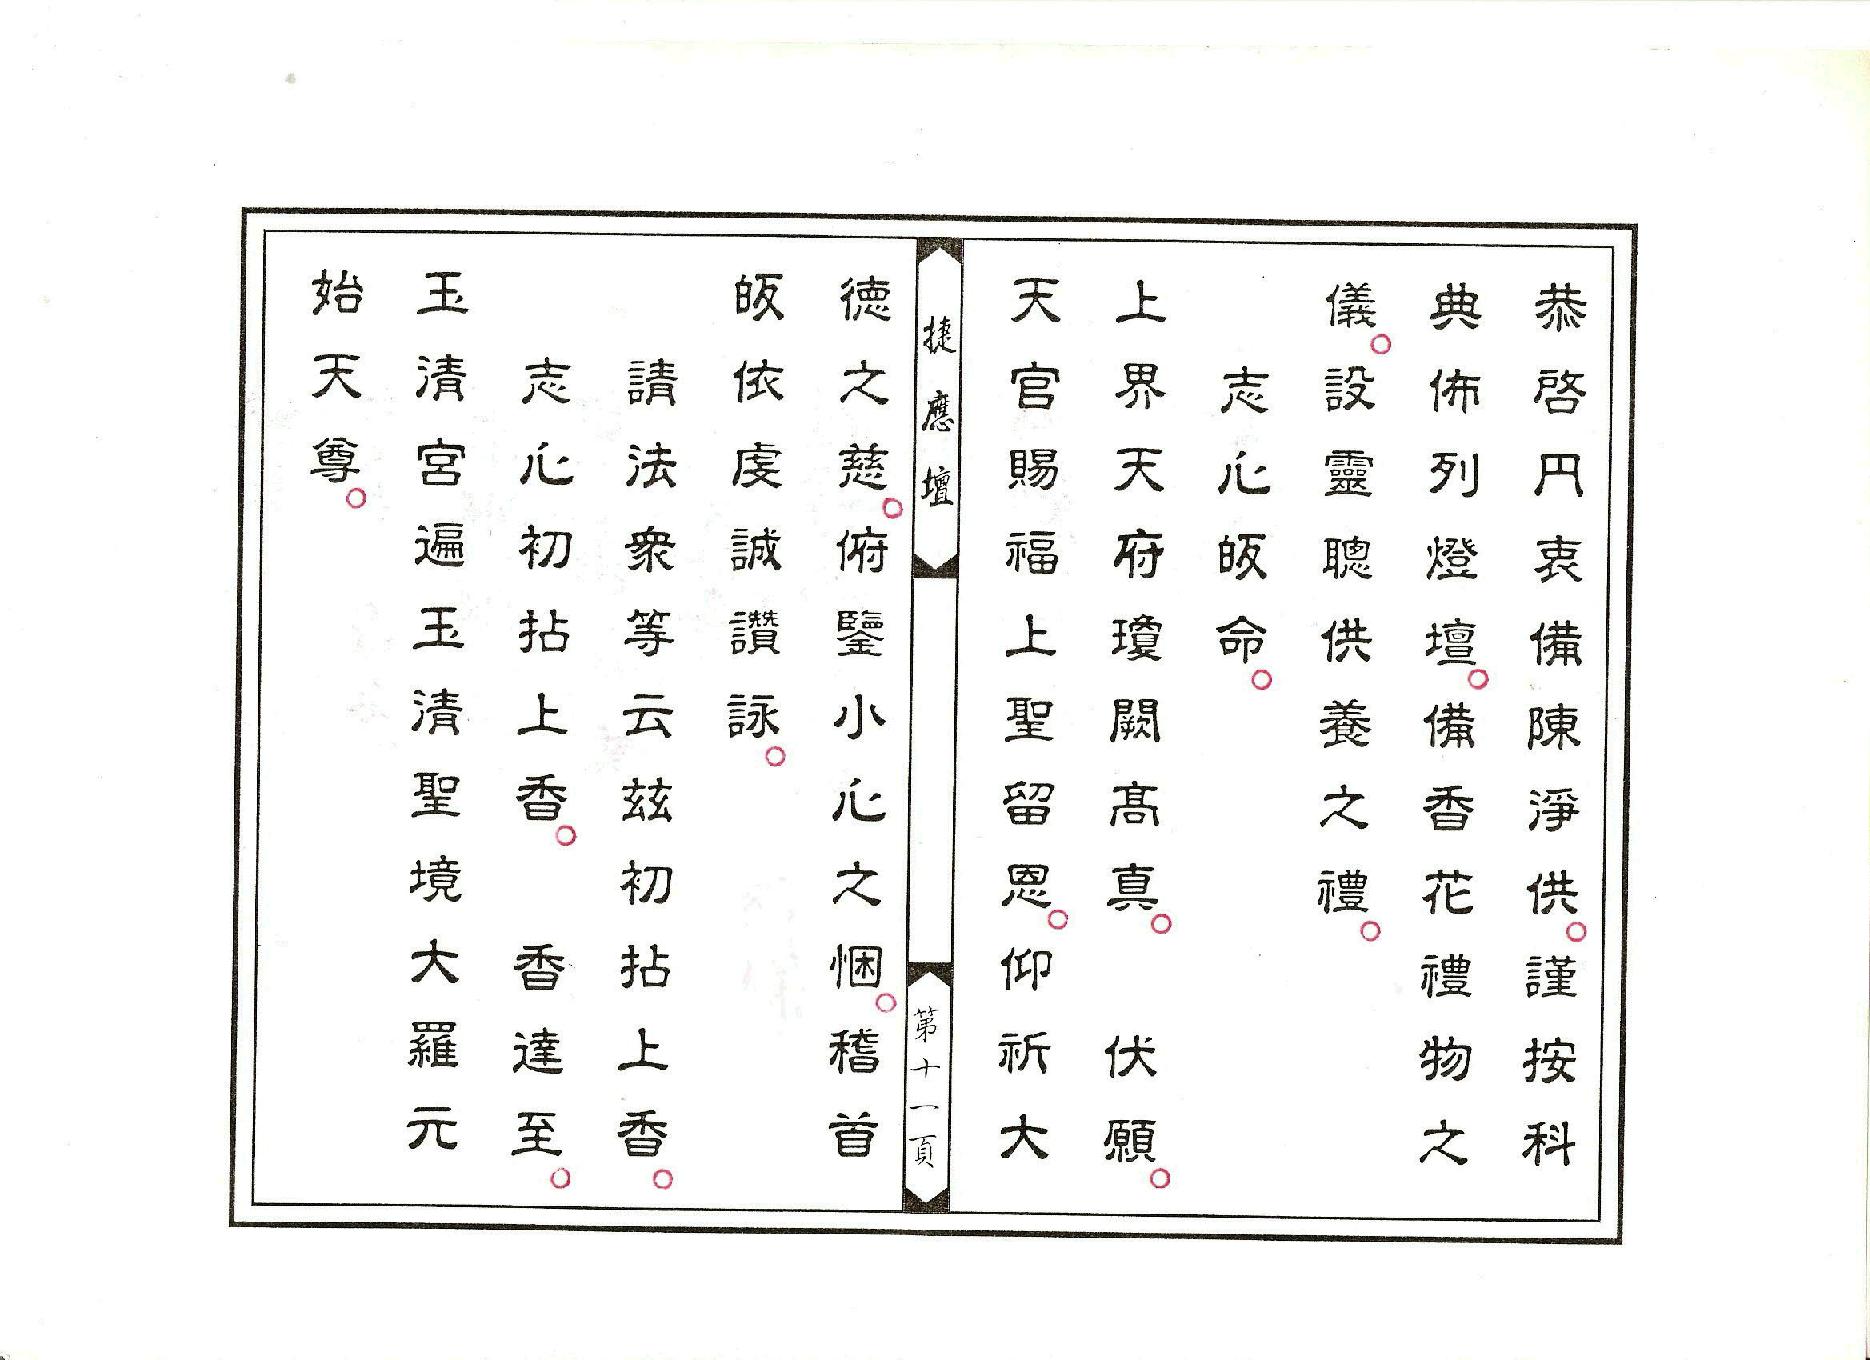 恭啓円衷備陳淨供。謹按科
典佈列燈壇。備香花禮物之
儀。設靈聰供養之禮。
志心皈命。
上界天府瓊闕髙真。 伏願。
天官賜福上聖留恩。仰祈大
捷應壇
第十一頁
德之慈。俯鑒小心之悃。稽首
皈依虔誠讚詠。
請法衆等云茲初拈上香。
志心初拈上香。 香達至。
玉清宮遍玉清聖境大羅元
始天尊。